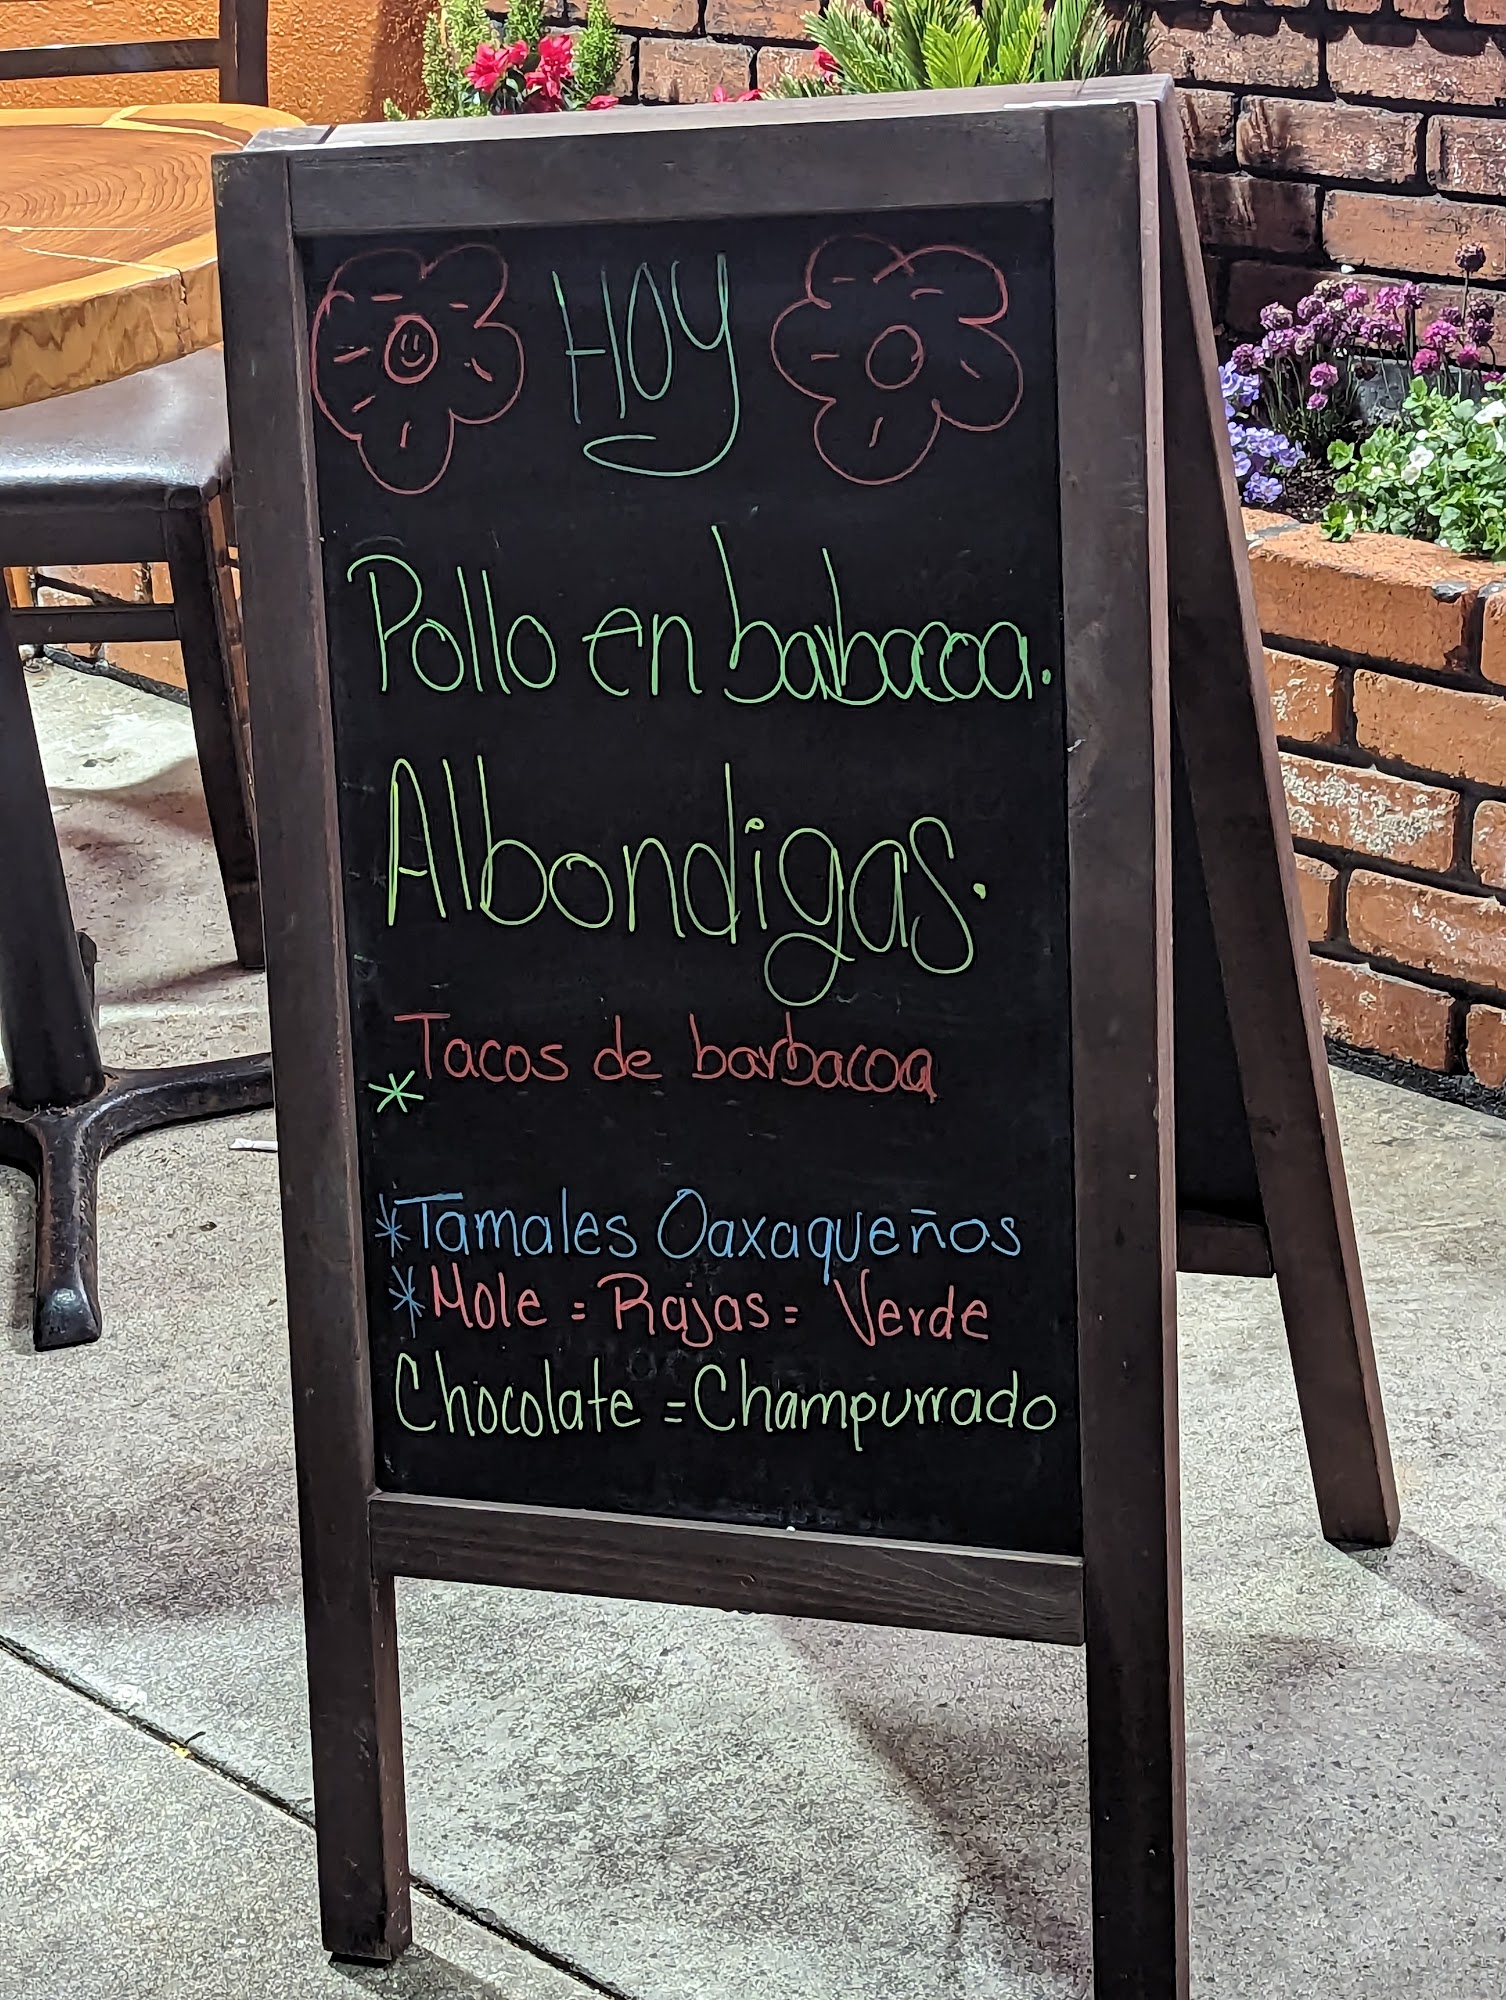 HOY
Pollo en barbacoa.
Albondigas.
Tacos de barbacoa
*
*Tamales Oaxaqueños
*Mole = Rajas = Verde
Chocolate = Champurrado